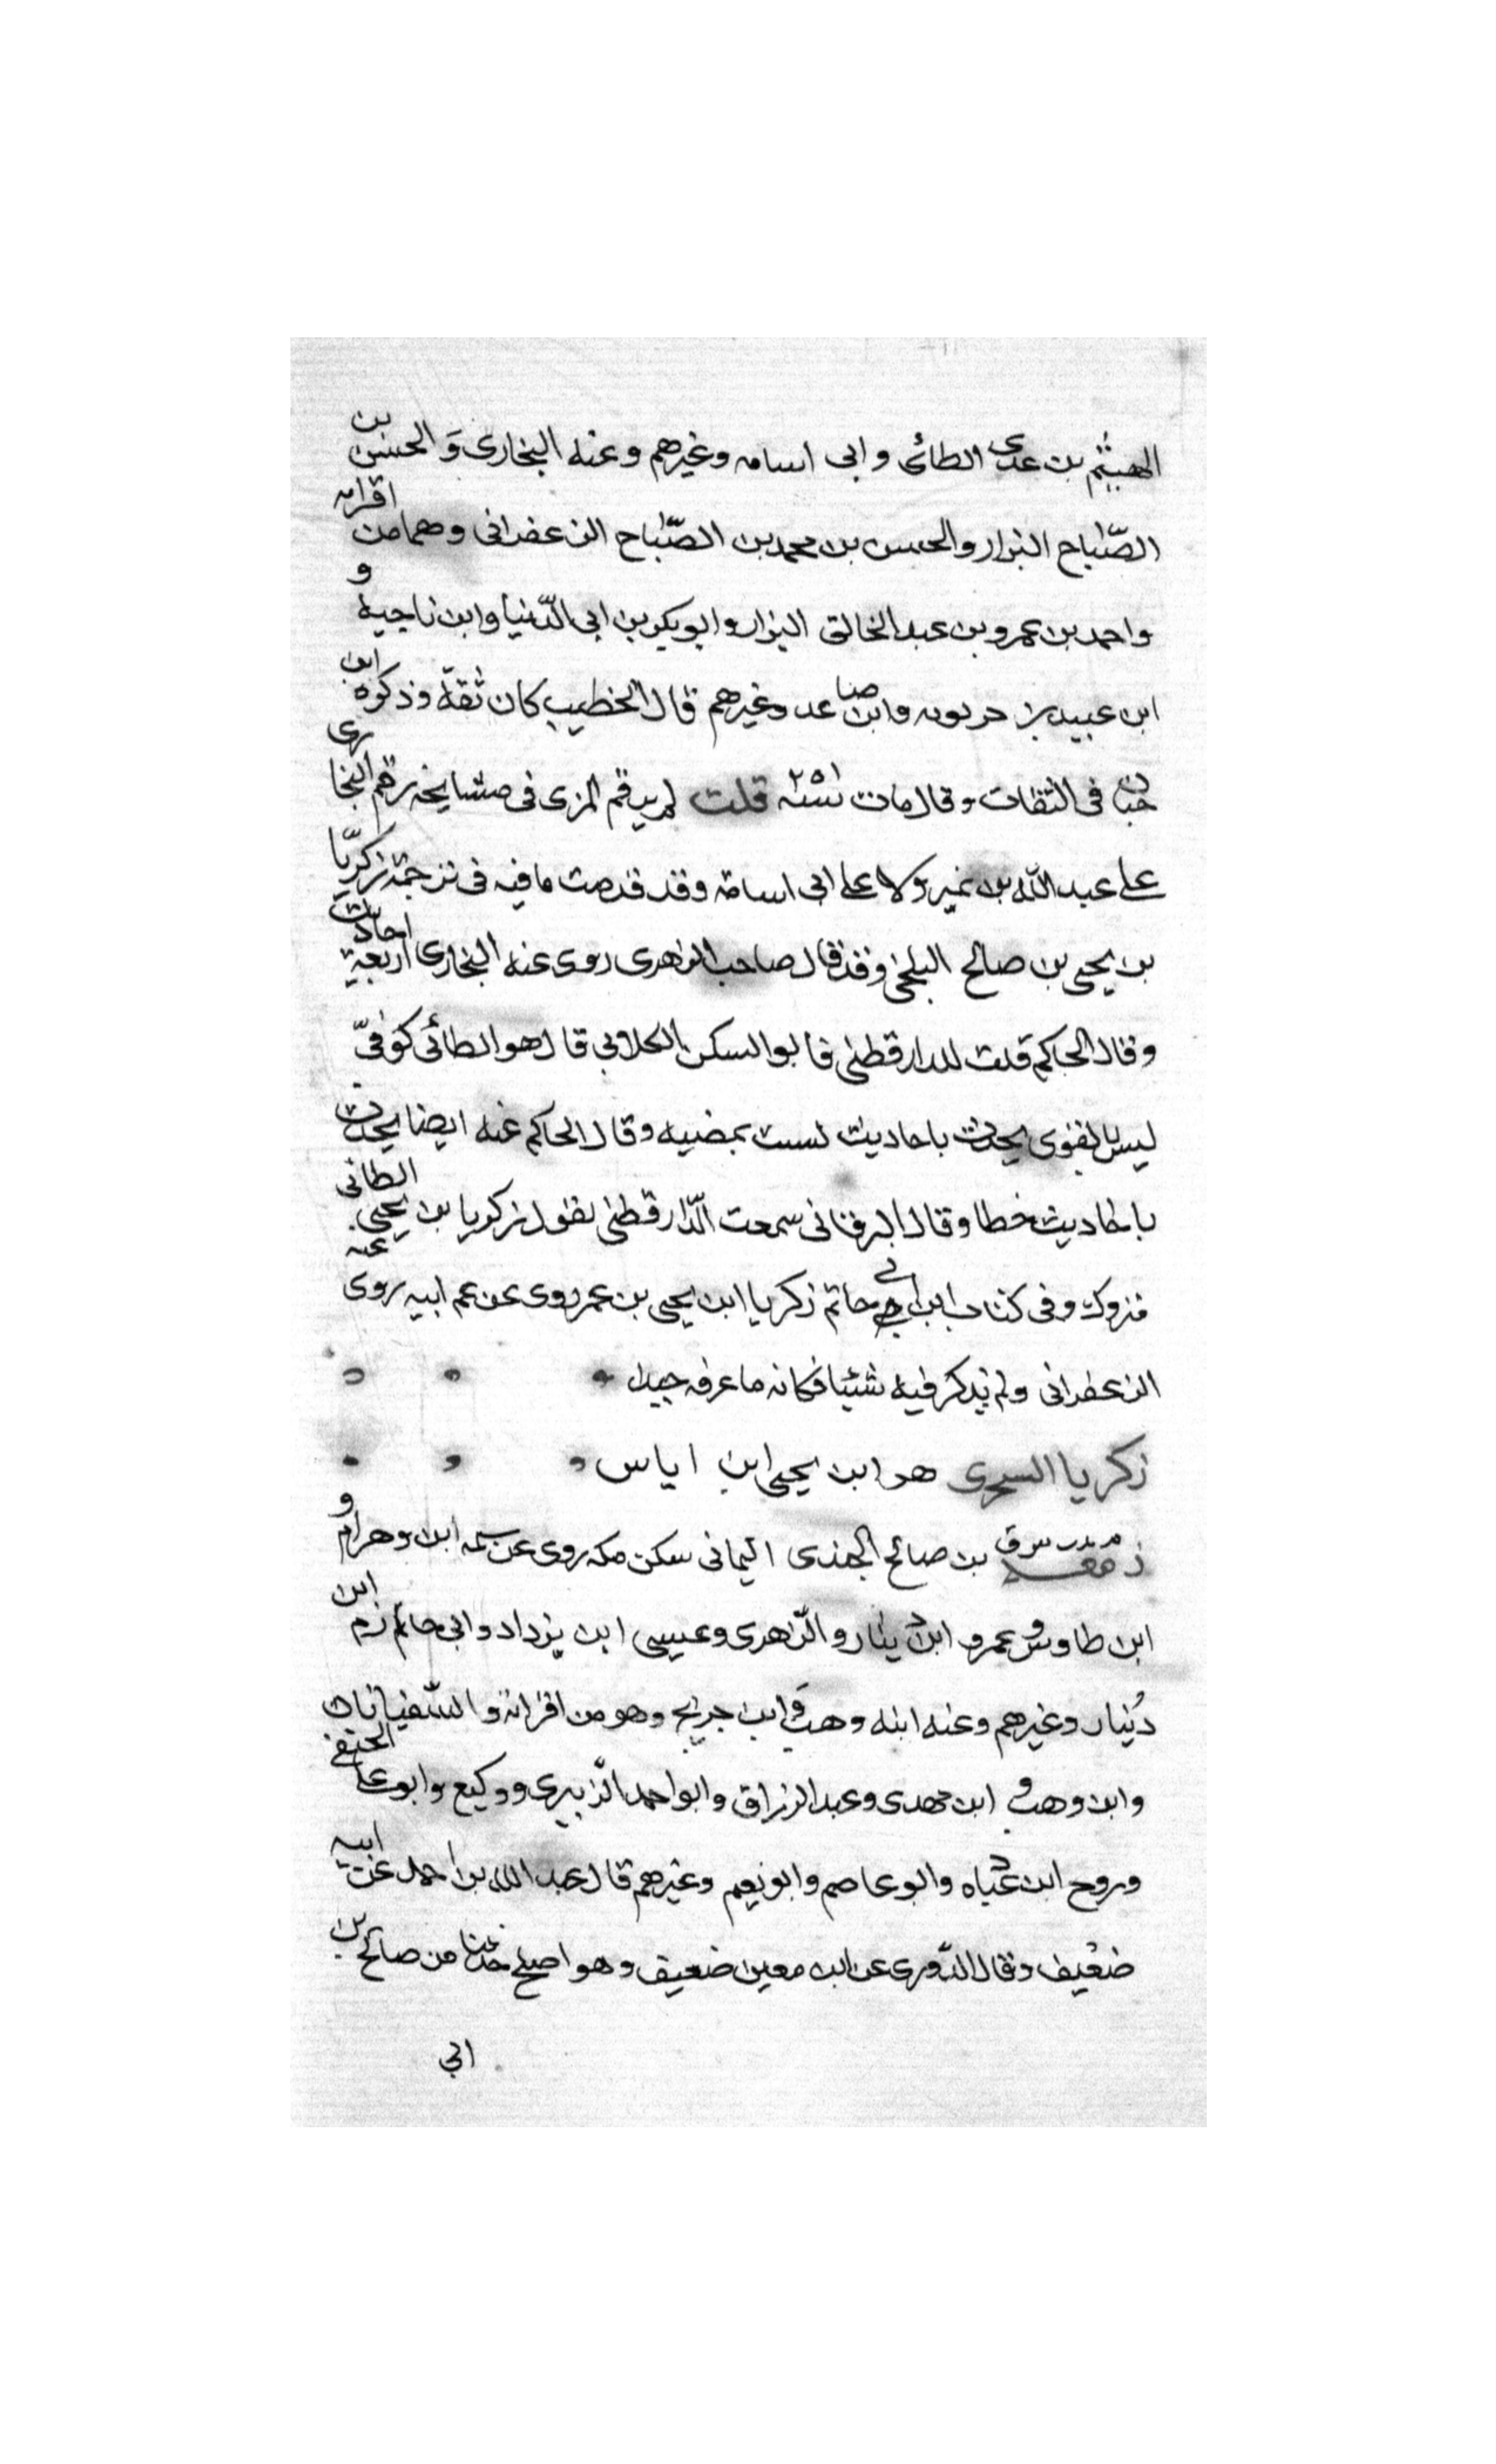 الهيثم بن عدى الطائى وابى اسامه وغيرهم وعنه البخارى وَالحسن بن
الصّباح البزار والحسن بن محمد بن الصّباح الزعفرانى وهما من اقرانه
واحمد بن عمرو بن عبد الخالق البزار وابو بكر بن ابى الدّنيا وابن ناجيه و
ابن عبيد بن حربويه وابن صاعد وغيرهم قال الخطيب كان ثقة وذكره ابن
حبان فى الثقات وقال مات سنه ٢٥١ قلت لم يرقم المزى فى مشايخه رقم البخارى
على عبد الله بن نمير ولا على ابى اسامة وقد قدمت ما فيه فى ترجمة زكريّا
بن يحيى بن صالح البلخى وقد قال صاحب الزهرى روى عنه البخارى اربعة احاديث
وقال الحاكم قلت للدارقطنى فابو السكن الكلابي قال هو الطائى كوفىّ
ليس بالقوى يحدث باحاديث ليست بمضيه وقال الحاكم عنه ايضا يحدث
باحاديث خطا وقال البرقانى سمعت الدّارقطنى يقول زكريا بن يحيى الطائى
متروك وفى كتاب ابن ابي حاتم زكريا ابن يحيى بن عمر روى عن عم ابيه روى عنه
الزعفرانى ولم يذكر فيه شيئا فكانه ما عرفه جيدا
زكريا السجزى هو ابن يحيى ابن اياس
م مد ت س ق زمعه بن صالح الجندى اليمانى سكن مكه روى عن سلمه ابن وهرام و
ابن طاوس وعمرو ابن دينار والزّهرى وعيسى ابن يزداد وابى حازم ابن
دينار وغيرهم وعنه ابنه وهب وابن جريج وهو من اقرانه والسّفيانان
وابن وهب و ابن مهدى وعبد الرزاق وابو احمد الزّبيرى ووكيع وابو عامر الحنفى
وروح ابن عباده وابو عاصم وابو نعيم وغيرهم قال عبد الله بن احمد عن ابيه
ضعيف وقال الدّورى عن ابن معين ضعيف وهو اصلح حديثا من صالح بن
ابي